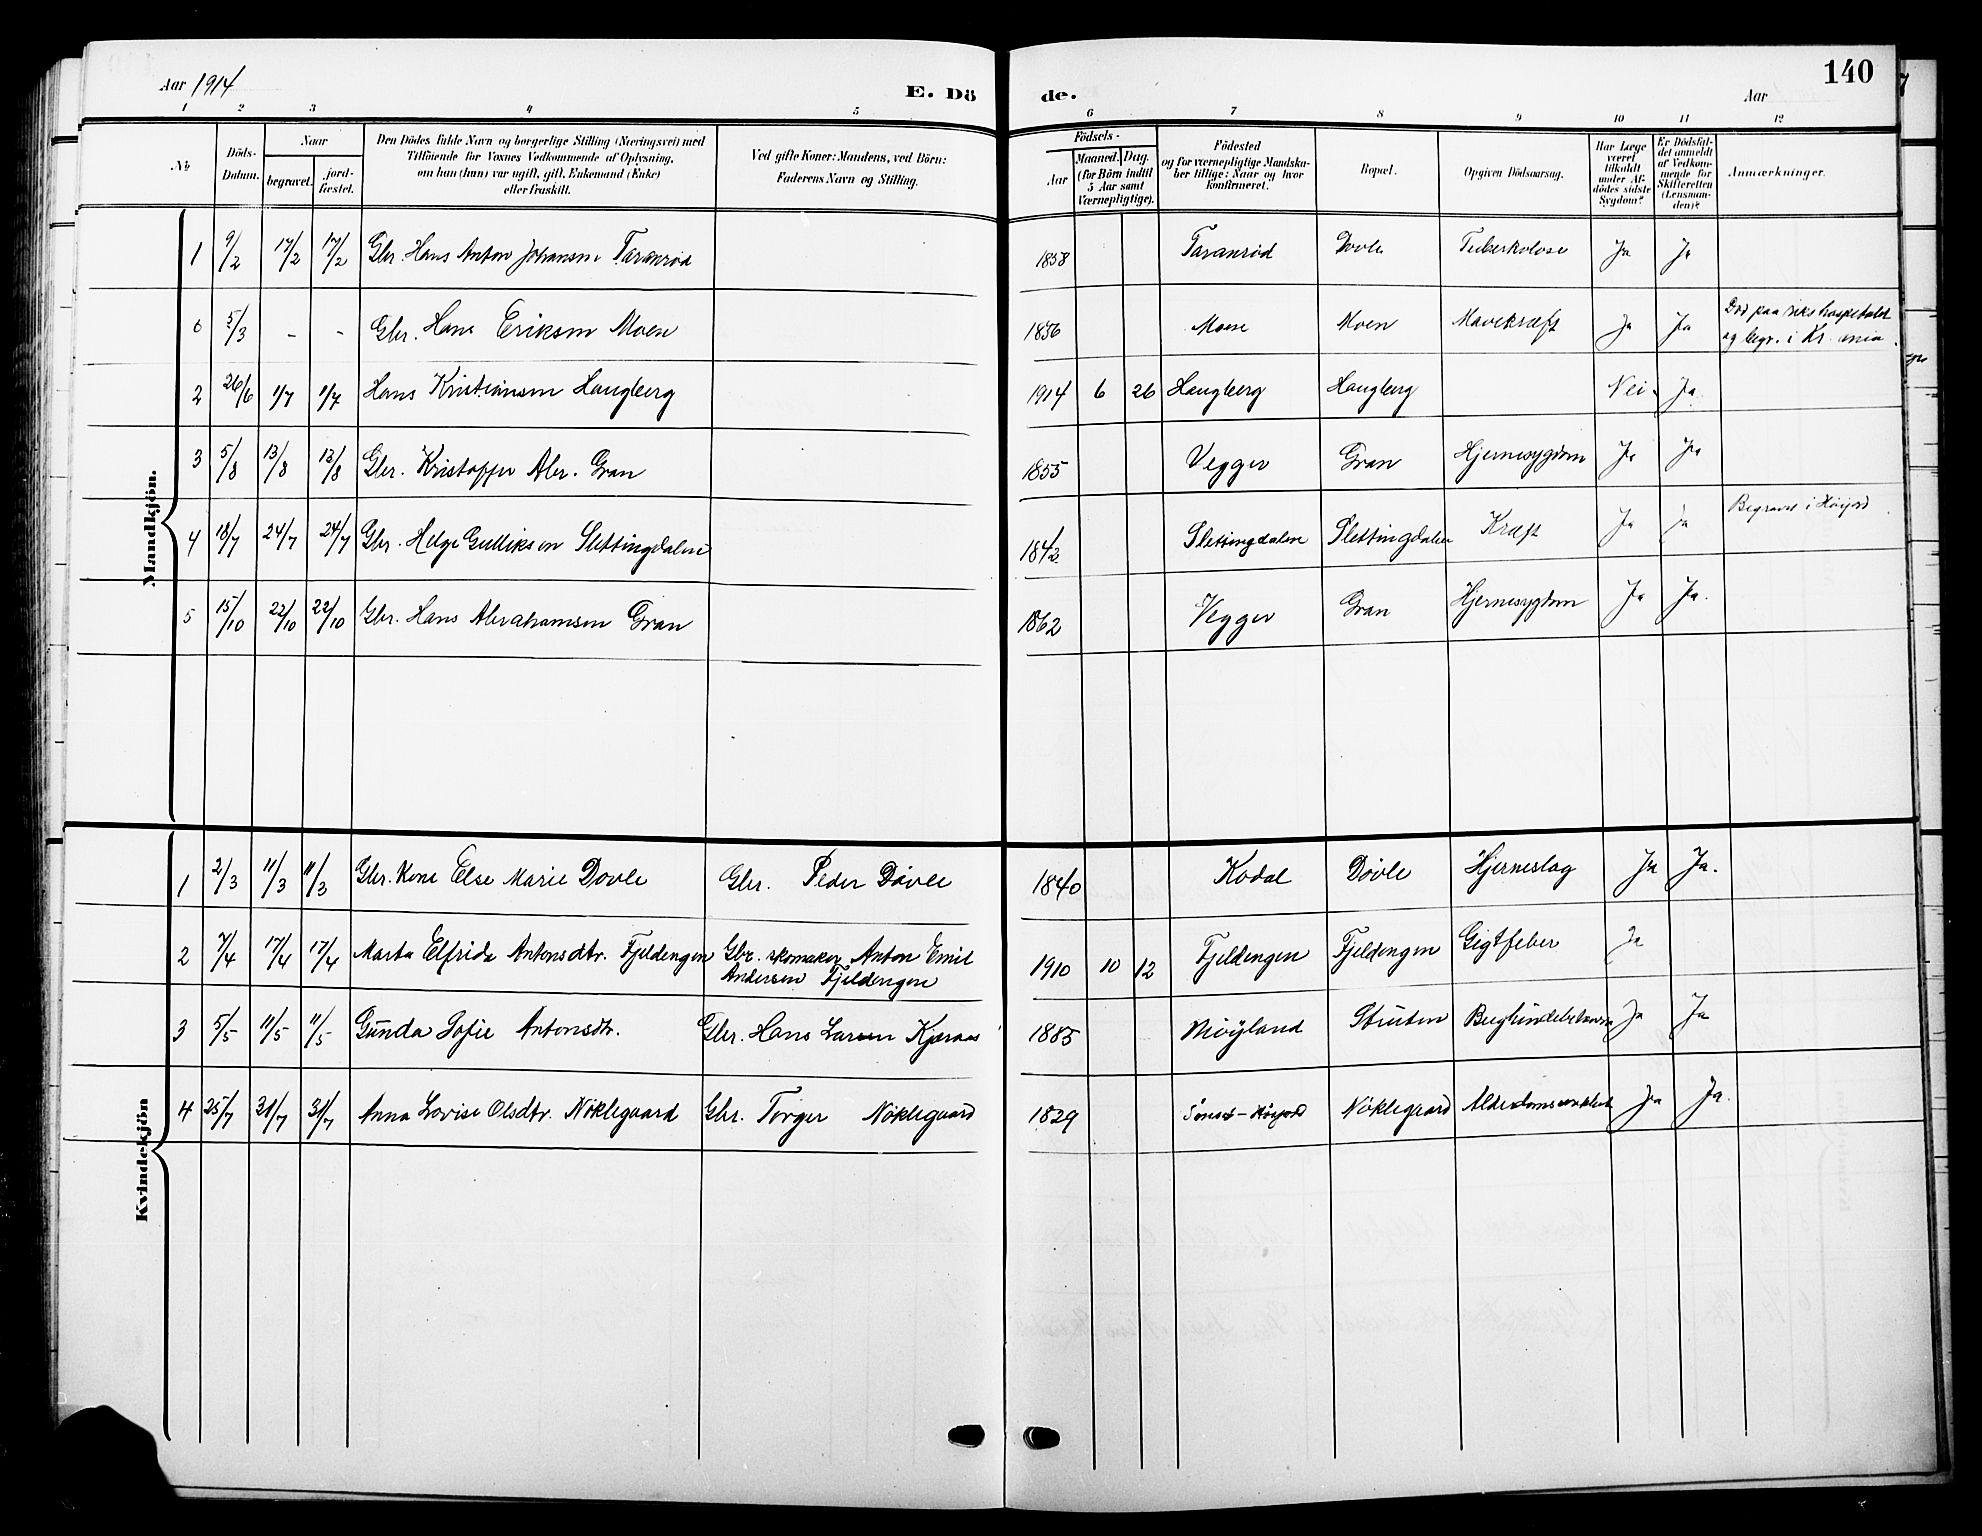 140
Aar 1914 E. Dö de. Aar
1 2 3 4 5 6 7 8 9 10 11 12
No
Döds-Datum.
Naar
begravet.
jord-fæstet.
Den Dödes fulde Navn og borgerlige Stilling (Næringsvei) med
Tilföiende for Voxnes Vedkommende af Oplysning,
om han (hun) var ugift, gift, Enkemand (Enke)
eller fraskilt.
Ved gifte Koner: Mandens, ved Börn:
Faderens Navn og Stilling.
Födsels-
Aar
Maaned. Dag.
(for Börn indtil
5 Aar samt
Værnepligtige).
Födested
og for værnepligtige Mandska-
ber tillige: Naar og hvor
konfirmeret.
Bopæl.
Opgiven Dödsaarsag.
Har Læge
været
tilkaldt
under Af-
dödes sidste
Sygdom?
Er Dödsfal-
det anmeldt
af Vedkom-
mende for
Skifteretten
(Lensman-
den)?
Anmærkninger.
Mandkjön.
1 9/2 17/2 17/2 Gbr. Hans Anton Johansen Taranrød 1858 Taranrød Dovle Tuberkolose Ja Ja
0 5/3 - - Gbr. Hans Eriksen Moen 1856 Moen Moen Mavekræft Ja Ja Død paa rikshospitalet
og begr. i Kr.ania.
2 26/6 1/7 1/7 Hans Kristiansen Haugberg 1914 6 26 Haugberg Haugberg Nei. Ja.
3 5/8 13/8 13/8 Gbr. Kristoffer Abr. Gran 1855 Vegger Gran Hjernesygdom Ja Ja
4 18/7 24/7 24/7 Gbr. Helge Gulliksen Slettingdalen 1842 Slettingdalen Slettingdalen Kræft Ja Ja Begravet i Høijord
5 15/10 22/10 22/10 Gbr. Hans Abrahamsen Gran 1862 Vegger Gran Hjernesygdom Ja Ja.
Kvindekjön
1 2/3 11/3 11/3 Gbr. Kone Else Marie Dovle Gbr. Peder Døvle 1840 Kodal Døvle Hjerneslag Ja Ja.
2 7/4 17/4 17/4 Marta Elfrida Antonsdtr. Fjeldengen Gbr. skomaker Anton Emil
Andersen Fjeldengen 1910 10 12 Fjeldengen Fjeldengen Gigtfeber Ja
3 5/5 11/5 11/5 Gunda Sofie Antonsdtr. Gbr. Hans Larsen Kjæraas 1885 Møyland Struten Ja Ja
4 25/7 31/7 31/7 Anna Lovise Olsdtr. Nøklegaard Gbr. Torger Nøklegaard 1829 Høijord Nøklegaard Ja Ja.